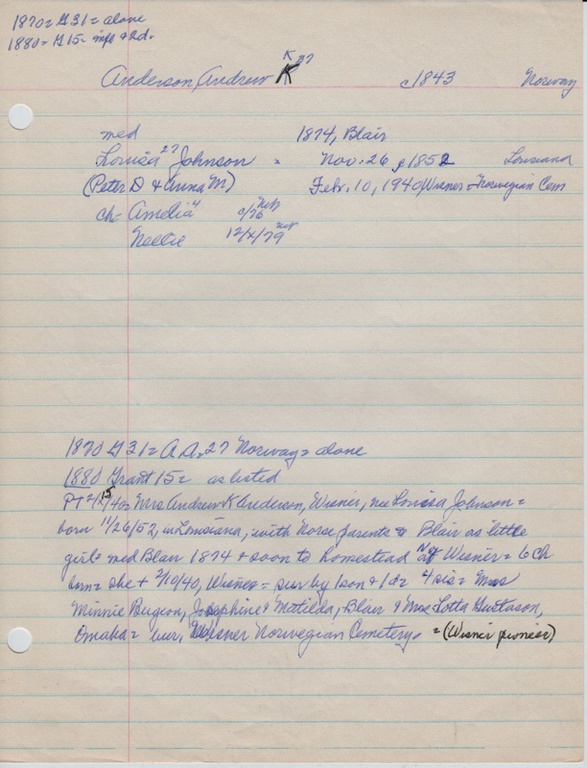 1870= G31= alone
1880= G15= wife & 2d.
Anderson, Andrew K K 27 c1843 Norway
med 1874, Blair
Louisa 27 Johnson = Nov. 26, c1852 Louisiana
(Peter D & Anna M) Febr. 10, 1940, Wisner = Norwegian Cem
ch- Amelia 4 c/76 Neb
Nellie 12/x/79 Neb
1870 G31= A A, 27 Norway= alone
1880 Grant 15= as listed
PT 2/15/40= Mrs Andrew K Anderson, Wisner, nee Louisa Johnson=
born 11/26/52, in Louisiana, with Norse parents to Blair as little
girl= med Blair 1874 & soon to homestead N of Wisner= 6 ch
born= she + 2/10/40, Wisner= sur by 1 son & 1 d= 4 sis= Mrs
Minnie Josephine & Matilda, Blair & Mrs Lotta Gustason,
Omaha= bur, Wisner Norwegian Cemetery= (Wisner pioneer)